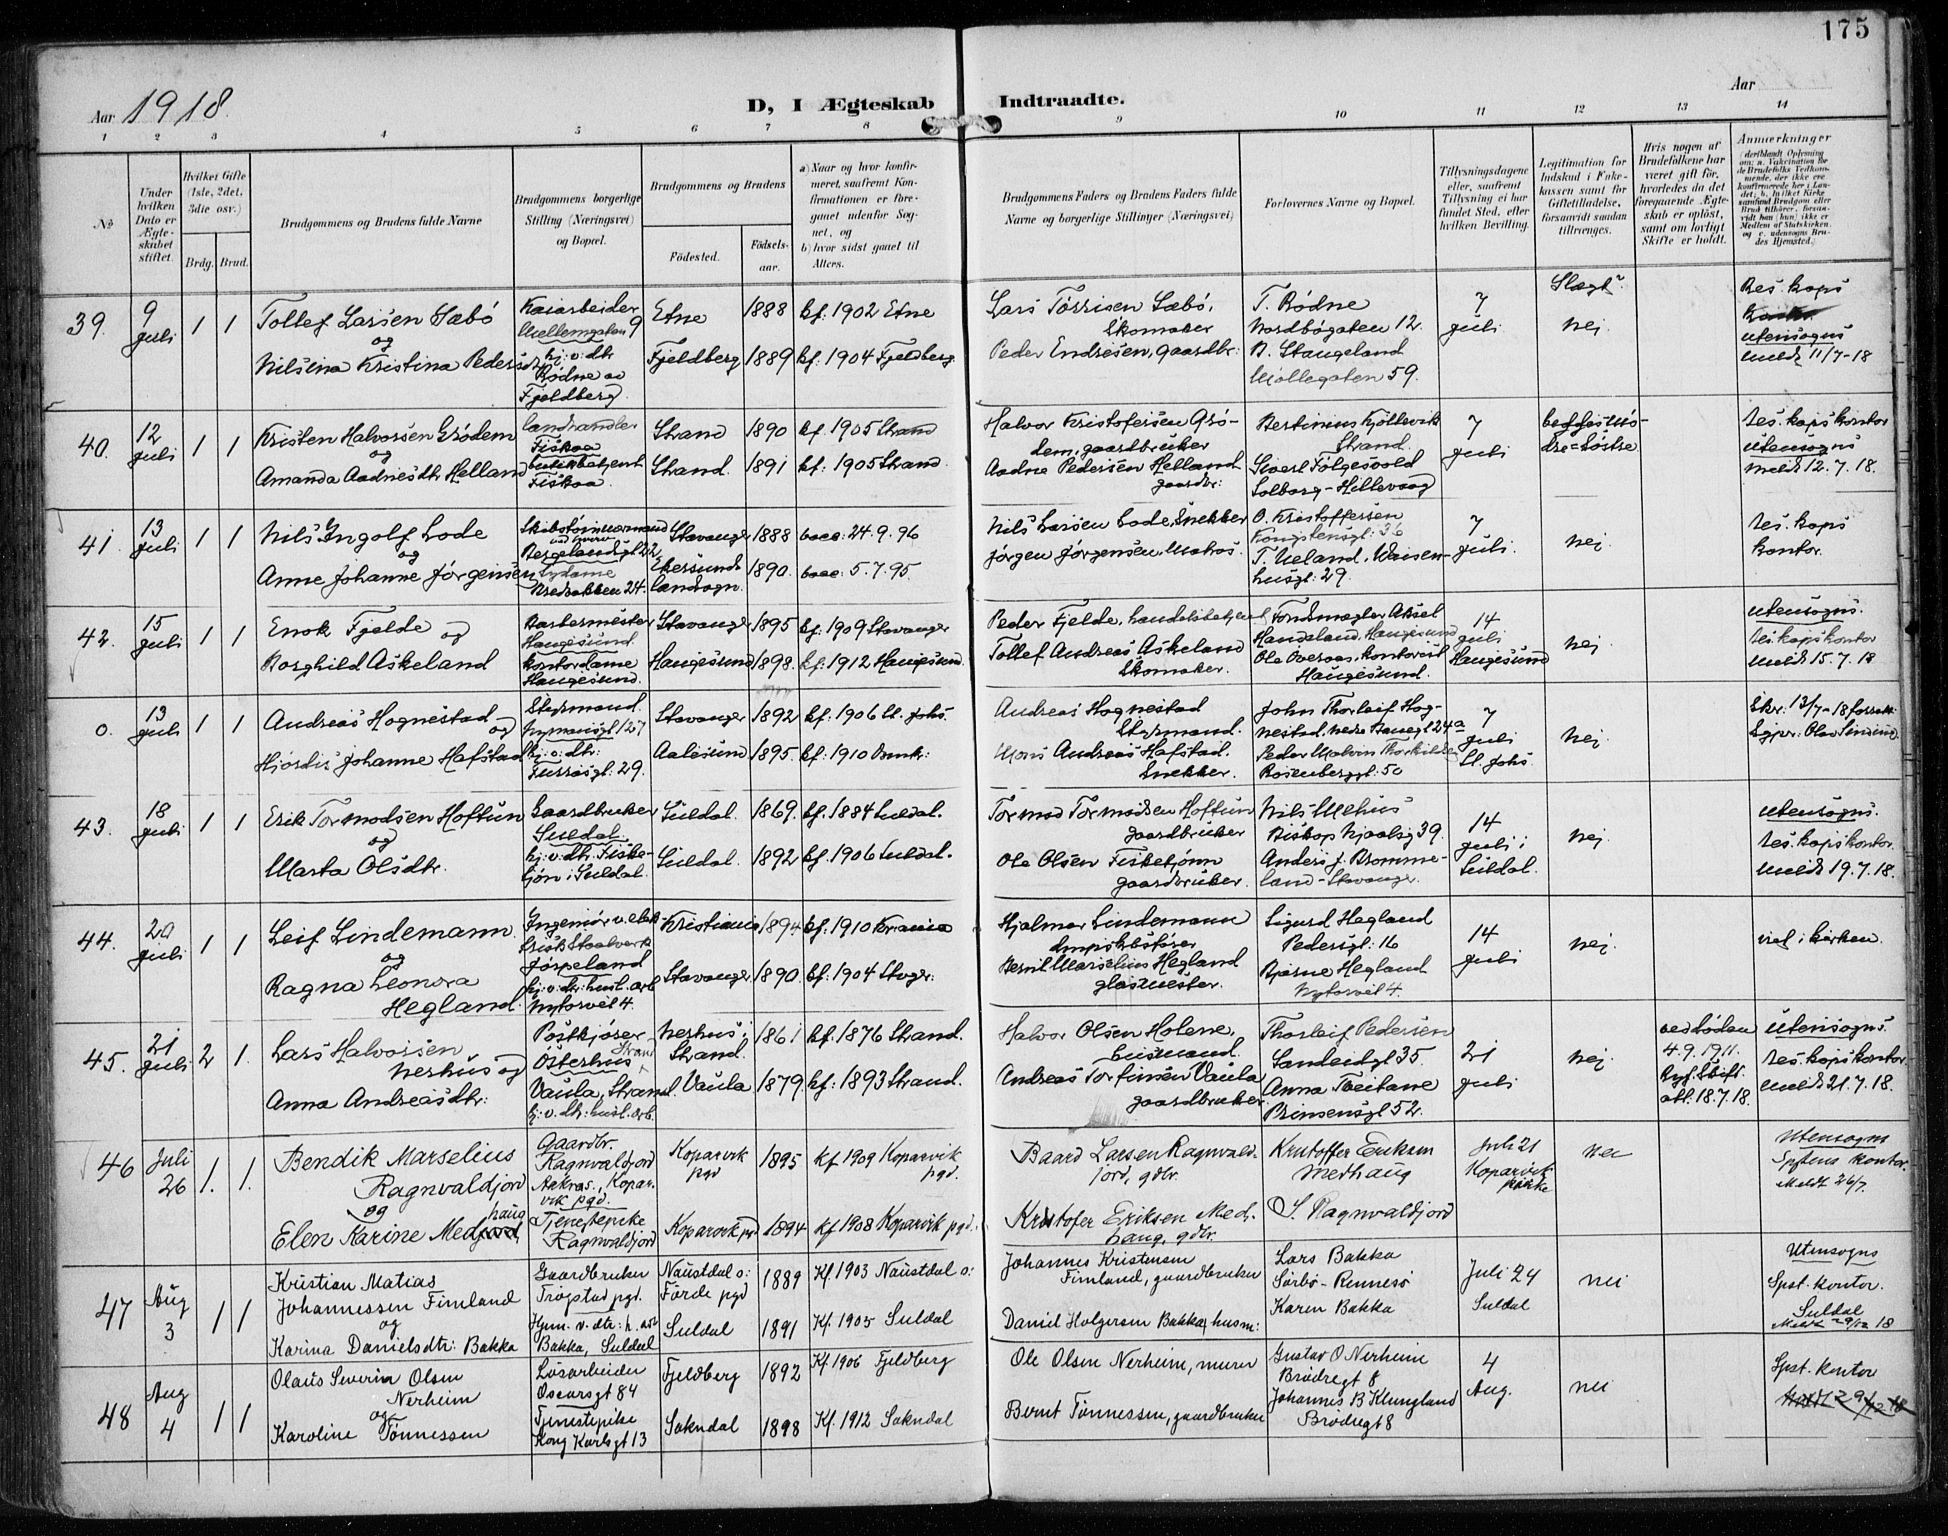 175
Aar 1918.
D, I Ægteskab Indtraadte.
Aar
1 2 3 4 5 6 7 8 9 10 11 12 13 14
No
Under hvilken Dato er Ægteskabet stiftet.
Hvilket Gifte (1ste, 2det, 3die osv.)
Brdg. Brud.
Brudgommens og Brudens fulde Navne
Brudgommens borgerlige Stilling (Næringsvei) og Bopæl.
Brudgommens og Brudens
Födested.
Födselsaar.
a) Naar og hvor konfirmeret, saafremt Konfirmationen er foregaaet udenfor Sognet, og
b) hvor sidst gaaet til Alters.
Brudgommens Faders og Brudens Faders fulde Navne og borgerlige Stillinger (Næringsvei)
Forlovernes Navne og Bopæl.
Tillysningsdagene eller, saafremt Tillysning ei har fundet Sted, efter hvilken Bevilling.
Legitimation for Indskud i Enkekassen samt for Giftetilladelse, forsaavidt saadan tiltrænges.
Hvis nogen af Brudefolkene har været gift för, hvorledes da det foregaaende Ægteskab er oplöst, samt om lovligt Skifte er holdt.
Anmærkninger
39. 9 juli 1 1
Tollef Larsen Sæbö
og
Nilsina Kristina Pedersdtr
Kaiarbeider
Mellemgaten 9
hj: v. dtr
Rödne av
Fjeldberg
Etne 1888 kf: 1902 Etne
Fjeldberg 1889 kf: 1904 Fjeldberg
Lars Törrisen Sæbö,
Skomaker
Peder Endresen, gaardbr:
T. Rödne
Nordbögaten 12.
B. Stangeland
Möllegaten 59.
7 juli
Slegt?
nej
Res. kaps
utensogns
meldt 11/7-18
40. 12 juli 1 1
Kristen Halvorsen Grödem
og
Amanda Aadnesdtr Helland
Landhandler
Fiskaa
butikbetjent
Fiskaa
Strand 1890 kf. 1905 Strand
Strand. 1891 kf: 1905 Strand
Halvor Kristofersen Grö-
dem, gaardbruker
Aadne Pedersen Helland
gaardbr:
Bertinius Kjöllevik
Strand.
Sivert Fölgesvold
Solborg - Hillevaag
7 juli
Res. kaps kontor
utensogns
meldt 12.7.18.
41. 13 juli 1 1
Nils Ingolf Lode
og
Anne Johanne Jörgensen
Skibstömmermand
Bergelandsgt 22
Sydame
Bredbakken 24.
Stavanger 1888 vacc: 24.9.96
Ekersunds landsogn. 1890. vacc: 5.7.95.
Nils Larsen Lode, Snekker
Jörgen Jörgensen, Matros.
O. Kristoffersen
Kongstensgt: 36
T. Ueland, Waisen-
husgt: 29.
7 juli.
nej.
Res. kaps
kontor.
42. 15 juli 1 1
Enok Fjelde og
Borghild Askeland
Barbermester
Haugesund.
Kontordame
Haugesund.
Stavanger 1895 kf: 1909 Stavanger
Haugesund 1898. kf: 1912 Haugesund.
Peder Fjelde, handelsbetjent
Tollef Andreas Askeland
Skomaker.
Aksel
Handeland, Haugesund
Ole Overaas, kontorist
Haugesund.
14 juli Haugesund
nej.
utensogns.
Res. kaps kontor
meldt 15.7.18
0. 13 juli 1 1
Andreas Hognestad og
Hjördis Johanne Hafstad
Styrmand.
Nymansgt 127
hj: v. dtr:
29.
Stavanger 1892 kf: 1906 St. Johs.
Aalesund 1895. kf: 1910
Andreas Hognestad
Styrmand.
Mons Andreas Hafstad.
Snekker.
John Thorleif Hog-
nestad, nedre Banegt 24a
Peder Malvin
Rosenberggt: 50
7 juli St. Johs.
nej.
43. 18 juli 1 1
Erik Tormodsen Hoftun
og
Marta Olsdtr.
Gaardbruker
Suldal.
hj: v. dtr: Fiske-
tjön i Suldal.
Suldal. 1869. kf: 1884 Suldal.
Suldal. 1892 kf. 1906 Suldal.
Tormod Tormodsen Hoftun
gaardbruker
Ole Olsen Fisketjönn
gaardbruker.
Nils Mehus
Biskop Njaalsg 39.
Anders J. Bromme-
land - Stavanger.
14 juli i Suldal.
nej.
utensogns.
Res. kaps kontor.
meldt 19.7.18.
44. 20 juli 1 1
Leif Lindemann
og
Ragna Leonora
Hegland.
Ingeniör v. elek-
trisk Staalverk
Jörpeland
hj: v. dtr: husl. arb
Nytorvet 4.
Kristiania 1894 kf. 1910 Kr.ania
Stavanger 1890. kf: 1904 Stvgr:
Hjalmar Lindemann
Marselius Hegland
glasmester.
Sigurd Hegland
Pedersgt: 16
Bjarne Hegland
Nytorvet 4.
14 juli
nej.
viet i kirken.
45. 21 juli 2 1.
Lars Halvorsen
Nerhus og
Anna Andreasdtr:
Postkjörer
Österhus Strand
Vaula, Strand.
hj: v. dtr: husl. arb.
Nerhus i Strand. 1861 kf. 1876 Strand.
Vaula 1879. kf: 1893 Strand.
Halvor Olsen Holene,
husmand.
Andreas Torfinsen Vaula
gaardbruker.
Thorleif Pedersen
Sandeidgt 35.
Anna Tveitane
Prinsensgt 52.
21 juli
nej.
ved döden
4.9.1911.
Skift.
att. 18.7.18.
utensogns.
Res. kaps kontor.
meldt 21.7.18.
46 Juli 26 1. 1.
Bendik Marselius
Ragnvaldjord
og
Elen Karine Medhaug
Gaardbr.
Ragnvaldjord
Aakra s., Kopar-
vik pgd.
Tjenestepike
Ragnvaldjord
Koparvik pgd 1895 kf 1909 Koparvik pgd.
Koparvik pgd 1894 kf 1908 Koparvik pgd.
Baard Larsen Ragnvald-
jord, gdbr.
Kristofer Eriksen Med-
haug, gdbr.
Kristoffer Eriksen
Medhaug
S. Ragnvaldjord
Juli 21 Koparvik kirke
nei
Utensogns
Spts kontor.
Meldt 26/7.
47 Aug 3 1 1
Kristian Matias
Johannessen Fimland
og
Karina Danielsdtr: Bakka
Gaardbruker
Trögstad pgd.
Hjem. v. dtr: h. arb
Bakka, Suldal
Naustdal s: Förde pgd 1889 Kf 1903 Naustdal s:
Suldal 1891 Kf. 1905 Suldal
Johannes Kristensen
Fimland, gaardbruker
Daniel Holgersen Bakka, husm:
Lars Bakka
Sörbö - Rennesö
Karen Bakka
Juli 24 Suldal
nei
Utensogns
Spst. kontor.
Suldal
Meldt 29/12 18
48 Aug 4 1 1
Olaus Severin Olsen
Nerheim
og
Karoline Tönnessen
Lösarbeider
Oscarsgt 84
Tjenestepike
Kong Karlsgt 13
Fjeldberg 1892 Kf. 1906 Fjeldberg
Sokndal 1898 Kf. 1912 Sokndal
Ole Olsen Nerheim, murer
Bernt Tönnessen, gaardbruker
Gustav O Nerheim
Brödregt 8
Johannes B Klungland
Brödregt 8
4 Aug.
nei
Spst. kontor